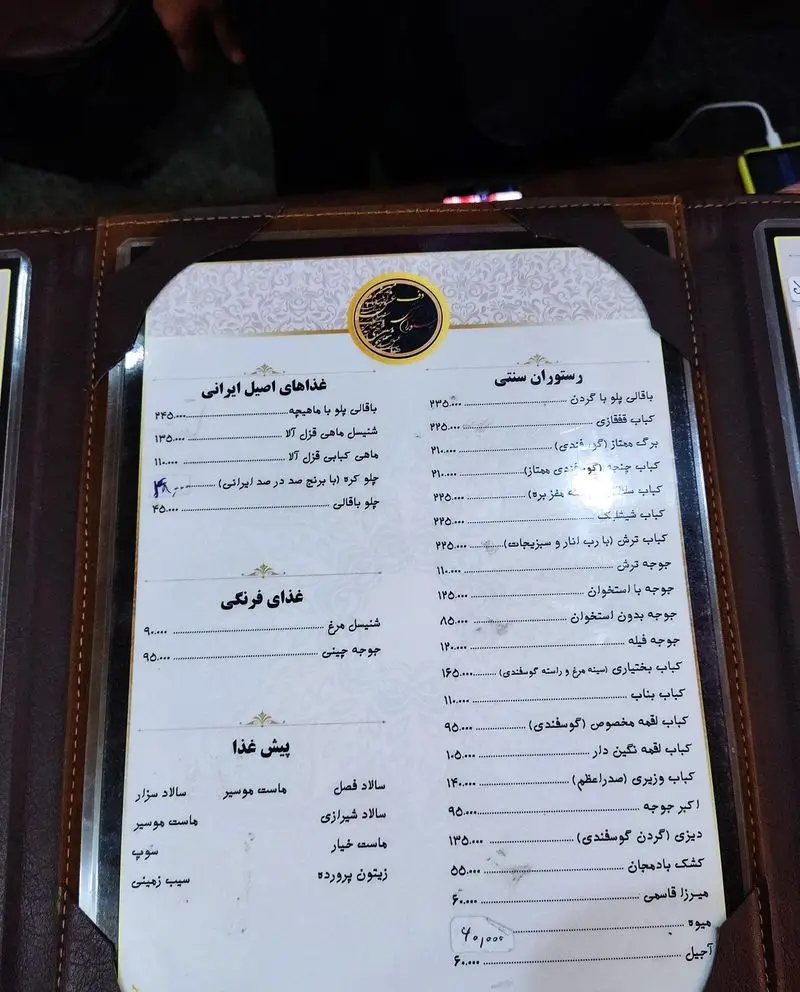 رستوران سنتی
باقالی پلو با گردن ........ ۲۳۵.۰۰۰
کباب قفقازی ........ ۲۲۵.۰۰۰
برگ ممتاز (گوسفندی) ........ ۲۱۰.۰۰۰
کباب چنجه (گوسفندی ممتاز) ........ ۲۱۰.۰۰۰
کباب ........ ۲۲۵.۰۰۰
کباب شیشلیک ........ ۲۲۵.۰۰۰
کباب ترش (با رب انار و سبزیجات) ........ ۲۲۵.۰۰۰
جوجه ترش ........ ۱۱۰.۰۰۰
جوجه با استخوان ........ ۱۲۵.۰۰۰
جوجه بدون استخوان ........ ۸۵.۰۰۰
جوجه فیله ........ ۱۲۰.۰۰۰
کباب بختیاری (سینه مرغ و راسته گوسفندی) ........ ۱۶۵.۰۰۰
کباب بناب ........ ۱۱۰.۰۰۰
کباب لقمه مخصوص (گوسفندی) ........ ۹۵.۰۰۰
کباب لقمه نگین دار ........ ۱۰۵.۰۰۰
کباب وزیری (صدراعظم) ........ ۱۴۰.۰۰۰
اکبر جوجه ........ ۹۵.۰۰۰
دیزی (گردن گوسفندی) ........ ۱۳۵.۰۰۰
کشک بادمجان ........ ۵۵.۰۰۰
میرزا قاسمی ........ ۶۰.۰۰۰
میوه ........
آجیل ........ ۶۰.۰۰۰
غذاهای اصیل ایرانی
باقالی پلو با ماهیچه ........ ۲۴۵.۰۰۰
شنیسل ماهی قزل آلا ........ ۱۳۵.۰۰۰
ماهی کبابی قزل آلا ........ ۱۱۰.۰۰۰
چلو کره (با برنج صد در صد ایرانی) ........
چلو باقالی ........ ۴۵.۰۰۰
غذای فرنگی
شنیسل مرغ ........ ۹۰.۰۰۰
جوجه چینی ........ ۹۵.۰۰۰
پیش غذا
سالاد فصل ماست موسیر سالاد سزار
سالاد شیرازی ماست موسیر
ماست خیار سوپ
زیتون پرورده سیب زمینی